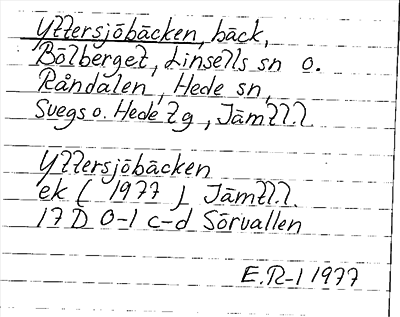 Yttersjöbäcken, bäck,
Bölberget, Linsells sn o.
Råndalen, Hede sn,
Svegs o. Hede tg, Jämtl.l.
Yttersjöbäcken
ek ( 1977 ) Jämtl.l.
17 D 0-1 c-d Sörvallen
E.R-l 1977